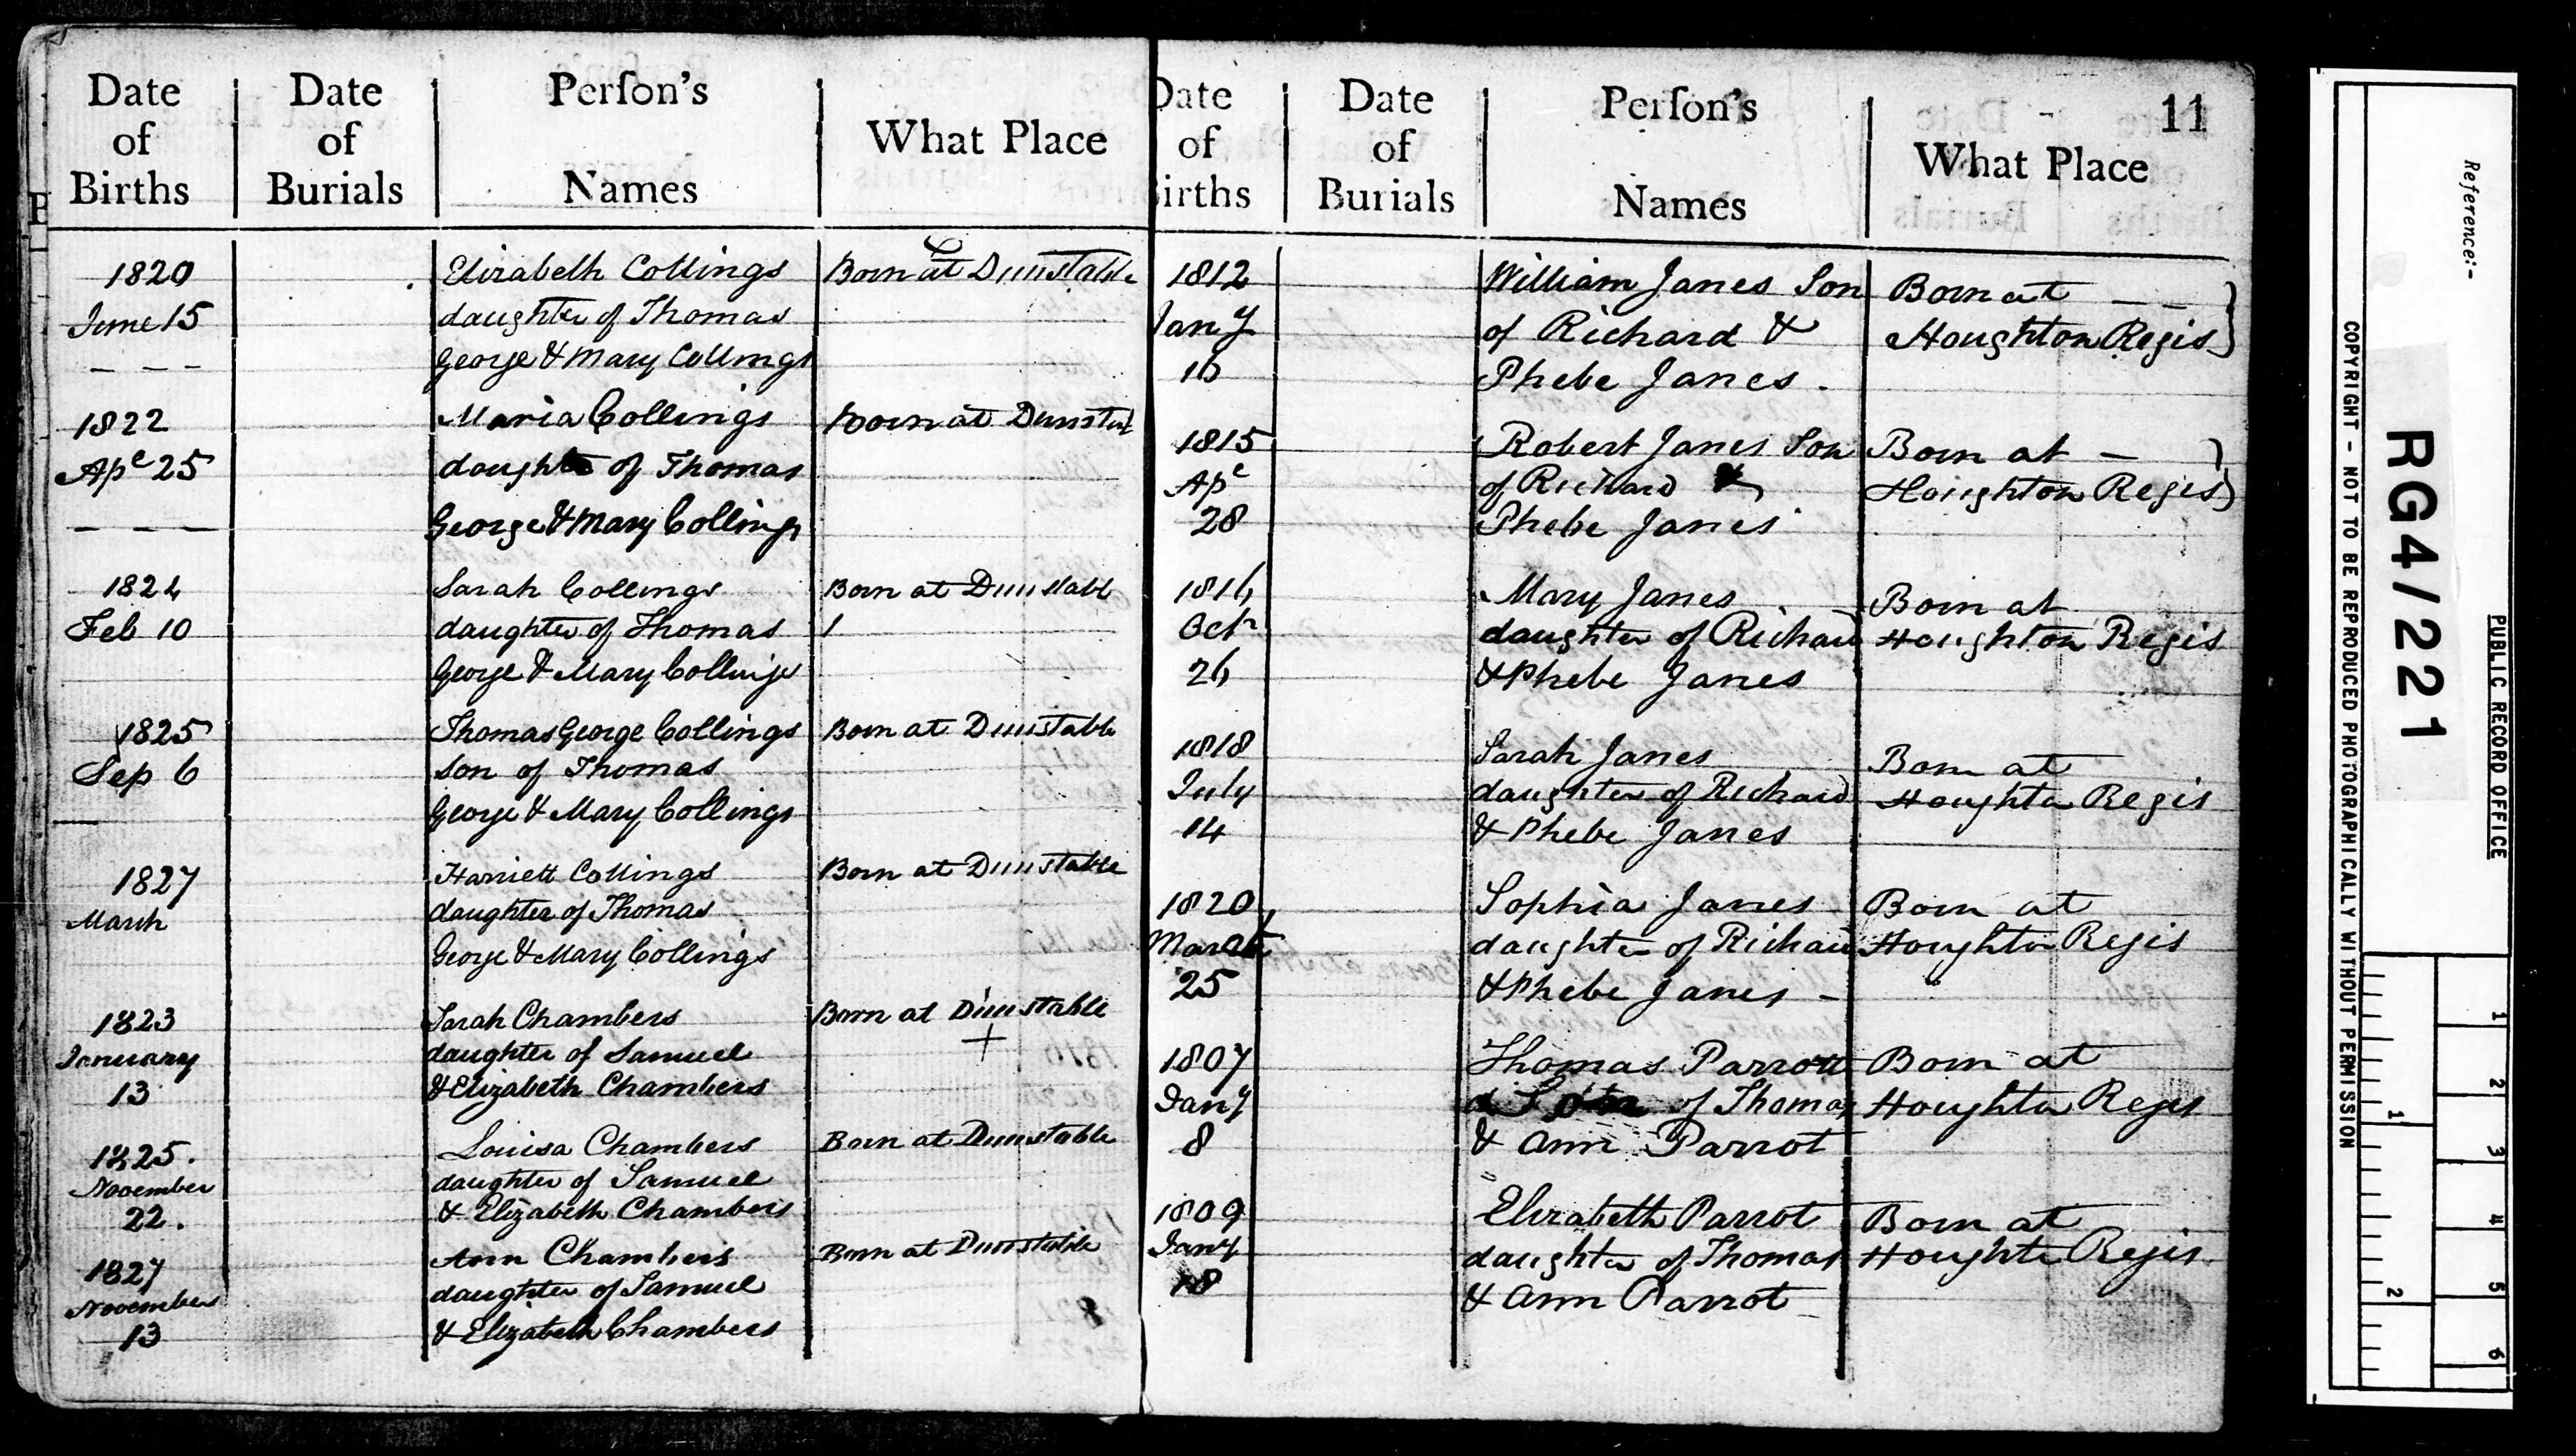 Date of Births
Date of Burials
Perſon's Names
What Place
1820
June 15
Elizabeth Collings
daughter of Thomas
George & Mary Collings
Born at Dunstable
1822
Ape 25
Maria Collings
daughter of Thomas
George & Mary Collings
Born at Dunstab
1824
Feb 10
Sarah Collings
daughter of Thomas
George & Mary Collings
Born at Dunstabl
1825
Sep 6
Thomas George Collings
Son of Thomas
George & Mary Collings
Born at Dunstable
1827
March
Harriett Collings
daughter of Thomas
George & Mary Collings
Born at Dunstable
1823
January
13
Sarah Chambers
daughter of Samuel
& Elizabeth Chambers
Born at Dunstable
+
1825.
November
22.
Louisa Chambers
daughter of Samuel
& Elizabeth Chambers
Born at Dunstable
1827
November
13
Ann Chambers
daughter of Samuel
& Elizabeth Chambers
Born at Dunstable
11
Date of Births
Date of Burials
Perſon's Names
What Place
1812
Jany
William Janes Son
of Richard &
Phebe Janes.
Born at
Houghton Regis
1815
Ape
28
Robert Janes Son
of Richard &
Phebe Janes
Born at
Houghton Regis
1816
Octr
26
Mary Janes
daughter of Richard
& Phebe Janes
Born at
Houghton Regis
1818
July
14
Sarah Janes
daughter of Richard
& Phebe Janes
Born at
Houghton Regis
1820
25
Sophia Janes
daughter of Richard
& Phebe Janes
Born at
Houghton Regis
1807
Jany
8
Thomas Parrott
of Thomas
& Ann Parrot
Born at
Houghton Regis
1809
Jany
18
Elizabeth Parrot
daughter of Thomas
& Ann Parrot
Born at
Houghton Regis
Reference:-
RG4/221
PUBLIC RECORD OFFICE
COPYRIGHT - NOT TO BE REPRODUCED PHOTOGRAPHICALLY WITHOUT PERMISSION
1
2
3
4
5
6
1
2